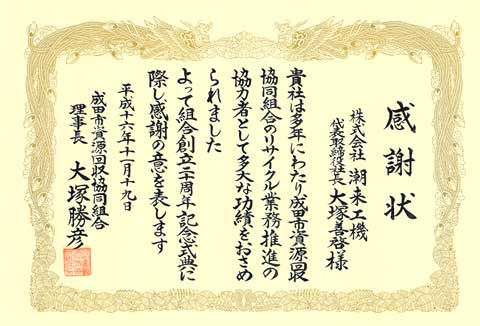 感謝状
株式会社 潮来工機
代表取締役社長 大塚善啓様
貴社は多年にわたり成田市資源回収
協同組合のリサイクル業務推進の
協力者として多大な功績をおさめ
られました
よって組合創立二十周年記念式典に
際し感謝の意を表します
平成十六年十一月十九日
成田市資源回収協同組合
理事長 大塚勝彦